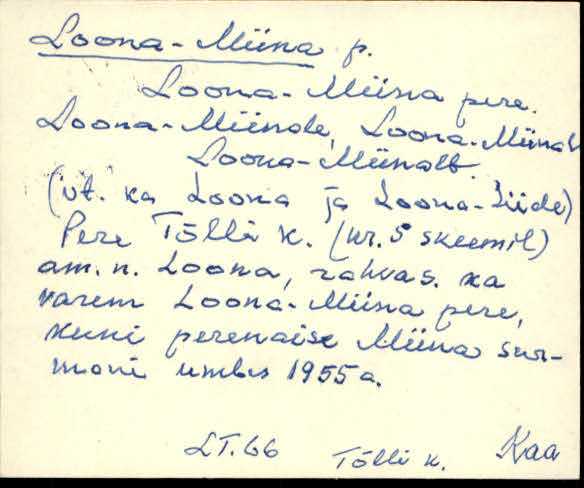 Loona-Miina p.
Loona-Miina pere.
Loona-Miinale, Loona-Miinal
Loona-Miinalt.
(vt. ka Loona ja Loona-Liide)
Pere Tõlli k. (nr. 5 skeemil)
am. n. Loona, rahvas. ka
varem Loona-Miina pere,
kuni perenaise Miina sur-
mani umbes 1955 a.
LT. 66 Tõlli k. Kaa